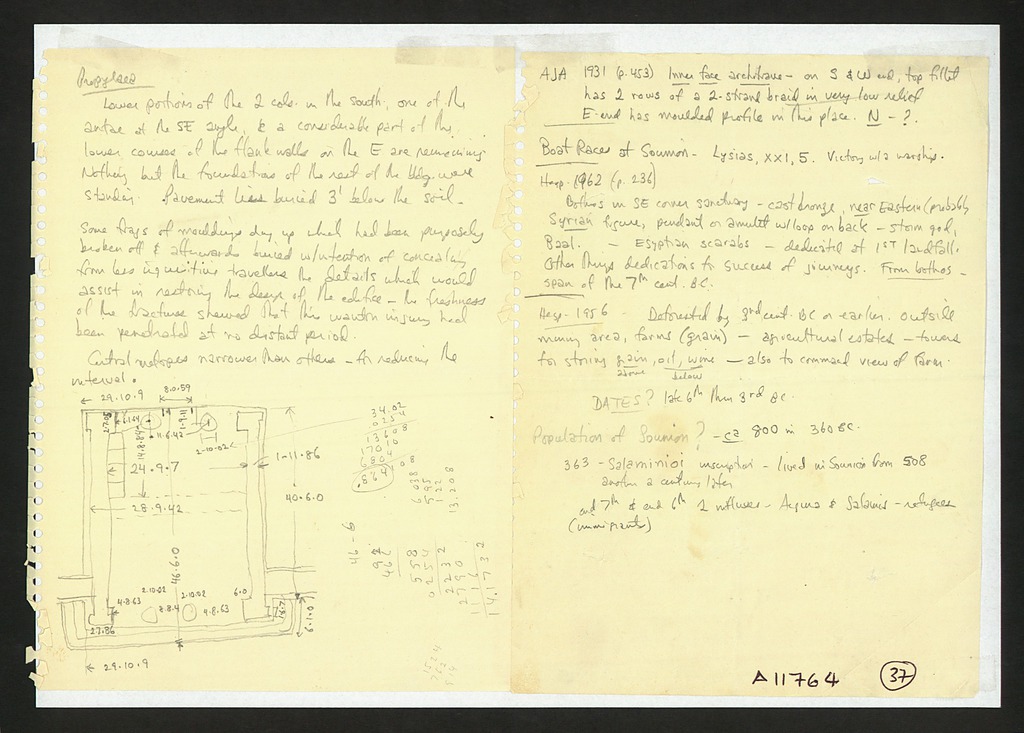 Propylaea
Lower portions of the 2 cols. in the south, one of the
antae at the SE angle, & a considerable part of the
lower courses of the flank walls on the E are remaining.
Nothing but the foundations of the rest of the bldg. were
standing. Pavement lies buried 3' below the soil.
Some frags of mouldings dug up which had been purposely
broken off & afterwards buried w/intention of concealing
from less inquisitive travellers the details which would
assist in restoring the design of the edifice - the freshness
of the fracture shewed that this wanton injury had
been penetrated at no distant period.
Central metopes narrower than others - thus reducing the
interval.
29.10.9
8.0.59
27.05
14.8.84
11.6.42
1-9.11
2-10.02
24.9.7
1-11.86
28.9.42
40.6.0
46.6.0
2.10.02
2.10.02
6.0
4.8.63
8.8.4
4.8.63
27.86
6.1.0
29.10.9
34.02
.864
13.208
46 - 6
558
0254
2232
2790
1116
14.1732
AJA 1931 (p. 453) Inner face architrave - on S & W end, top fillet
has 2 rows of a 2-strand braid in very low relief
E end has moulded profile in this place. N - ?
Boat Races at Sounion - Lysias, XXI, 5. Victory w/a warship.
Hesp. 1962 (p. 236)
Bothros in SE corner sanctuary - cast bronze, near Eastern (probably
Syrian figure, pendant or amulet w/loop on back - storm god,
Baal. - Egyptian scarabs - dedicated at 1st landfall.
Other things dedications to success of journeys. From bothros -
span of the 7th cent. BC.
Hesp. 1956 - Deforested by 3rd cent. BC or earlier. Outside
mining area, farms (grain) - agricultural estates - towers
for storing grain, oil, wine - also to command view of farm.
above below
DATES? late 6th thru 3rd BC.
Population of Sounion? - ca 800 in 360 BC.
363 - Salaminioi inscription - lived in Sounion from 508
another a century later
end 7th & end 6th 2 influxes - Aegina & Salamis - refugees
(immigrants)
A11764 37